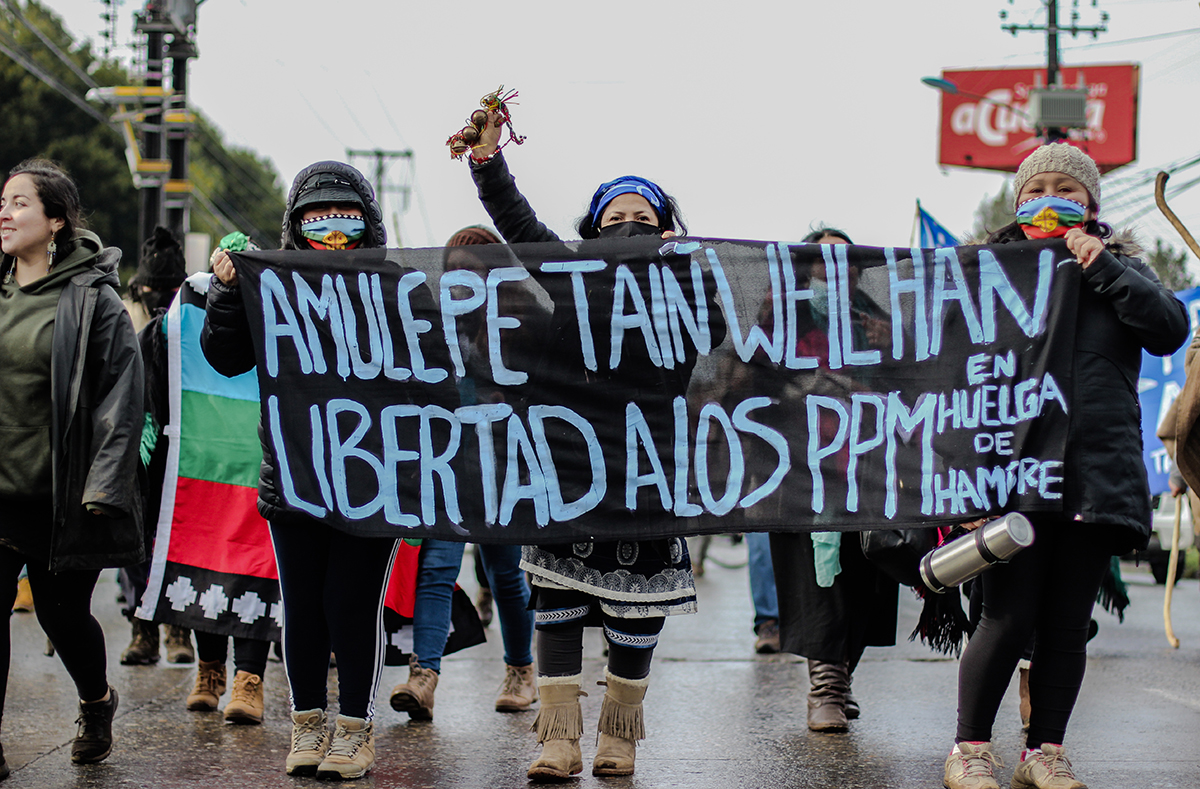 aCuenta
AMULEPE TAIÑ WEILHAN
LIBERTAD A LOS PPM
EN
HUELGA
DE
HAMBRE